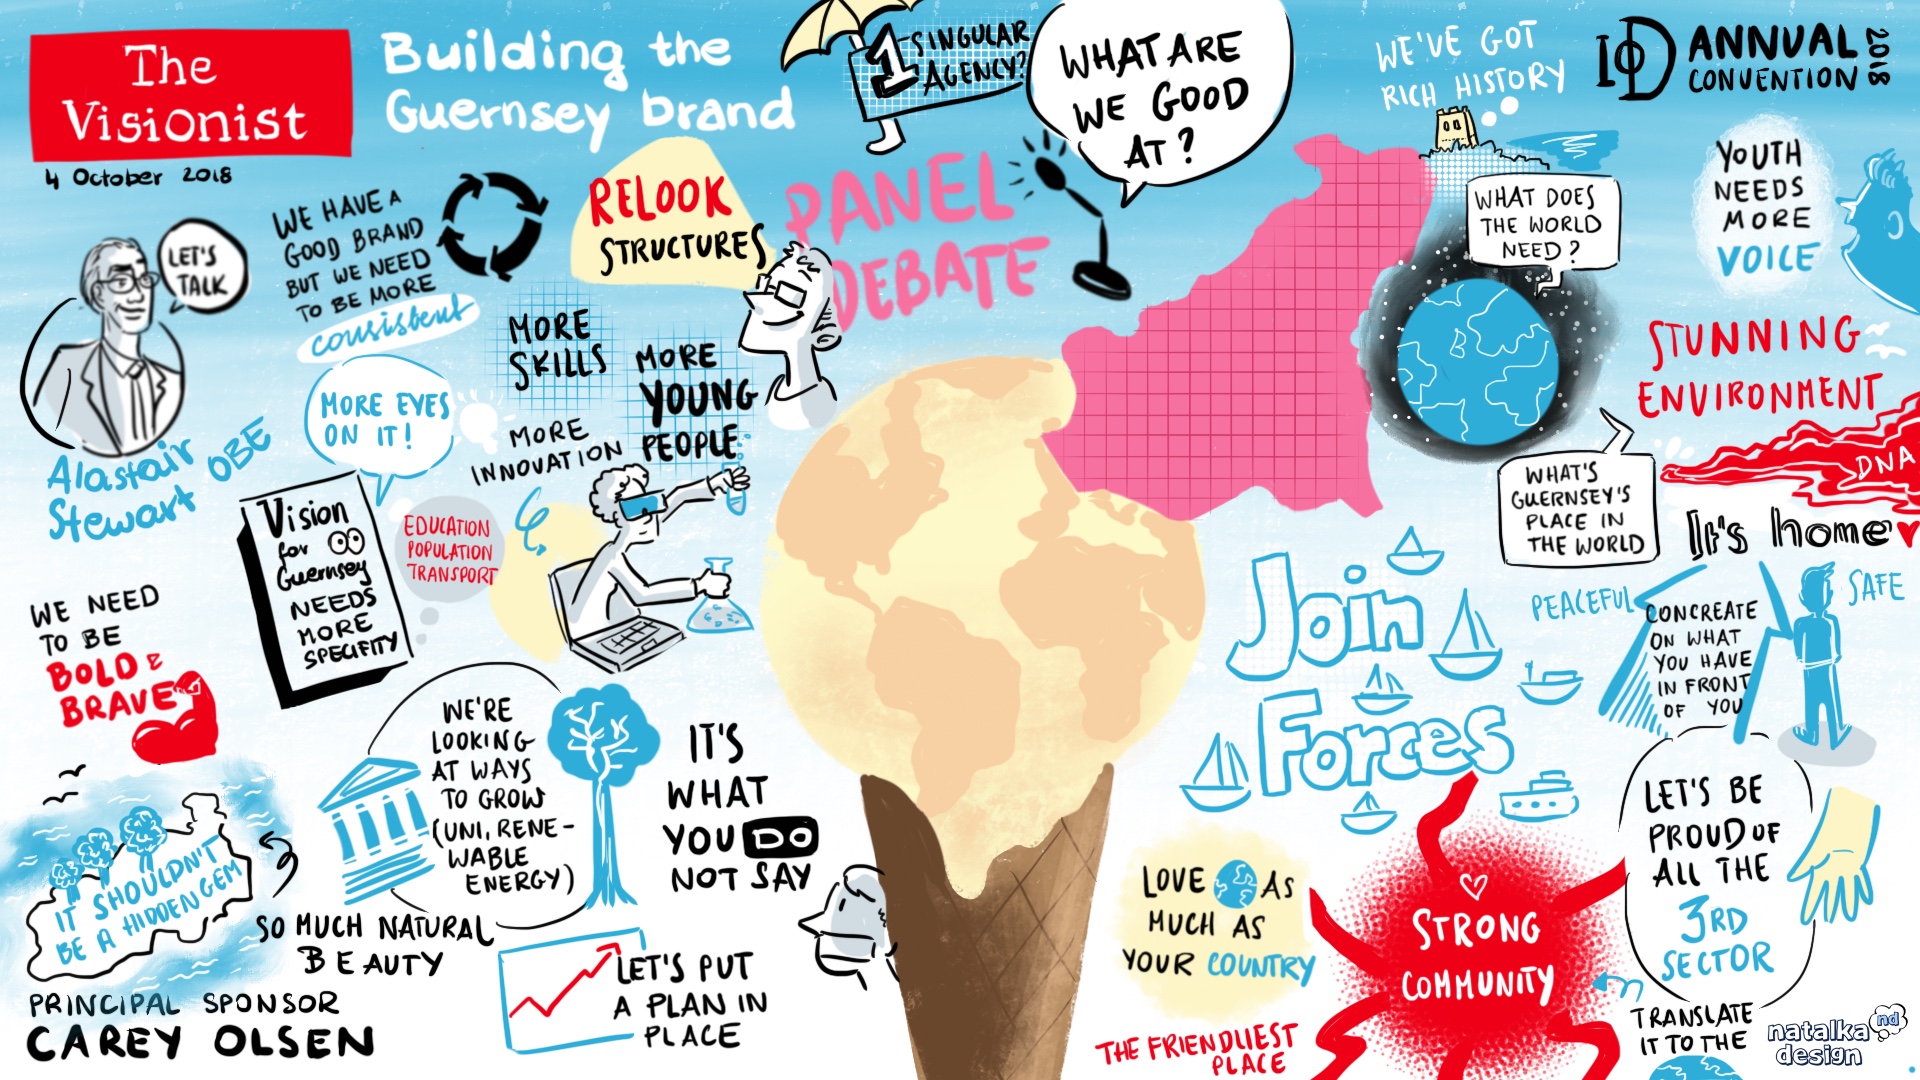 The
Visionist
4 October 2018
Building the
Guernsey brand
1 SINGULAR
AGENCY?
WHAT ARE
WE GOOD
AT?
WE'VE GOT
RICH HISTORY
IoD ANNUAL
CONVENTION
2018
LET'S
TALK
Alastair
Stewart OBE
WE HAVE A
GOOD BRAND
BUT WE NEED
TO BE MORE
consistent
RELOOK
STRUCTURES
PANEL
DEBATE
WHAT DOES
THE WORLD
NEED?
YOUTH
NEEDS
MORE
VOICE
MORE
SKILLS
MORE
YOUNG
PEOPLE
MORE
INNOVATION
MORE EYES
ON IT!
Vision
for
Guernsey
NEEDS
MORE
SPECIFITY
EDUCATION
POPULATION
TRANSPORT
STUNNING
ENVIRONMENT
DNA
WHAT'S
GUERNSEY'S
PLACE IN
THE WORLD
It's home
PEACEFUL
SAFE
CONCREATE
ON WHAT
YOU HAVE
IN FRONT
OF YOU
Join
Forces
WE NEED
TO BE
BOLD &
BRAVE
IT SHOULDN'T
BE A HIDDEN GEM
SO MUCH NATURAL
BEAUTY
WE'RE
LOOKING
AT WAYS
TO GROW
(UNI, RENE-
WABLE
ENERGY)
IT'S
WHAT
YOU DO
NOT SAY
LET'S PUT
A PLAN IN
PLACE
PRINCIPAL SPONSOR
CAREY OLSEN
LOVE AS
MUCH AS
YOUR COUNTRY
THE FRIENDLIEST
PLACE
STRONG
COMMUNITY
LET'S BE
PROUD OF
ALL THE
3RD
SECTOR
TRANSLATE
IT TO THE
natalka
design
nd